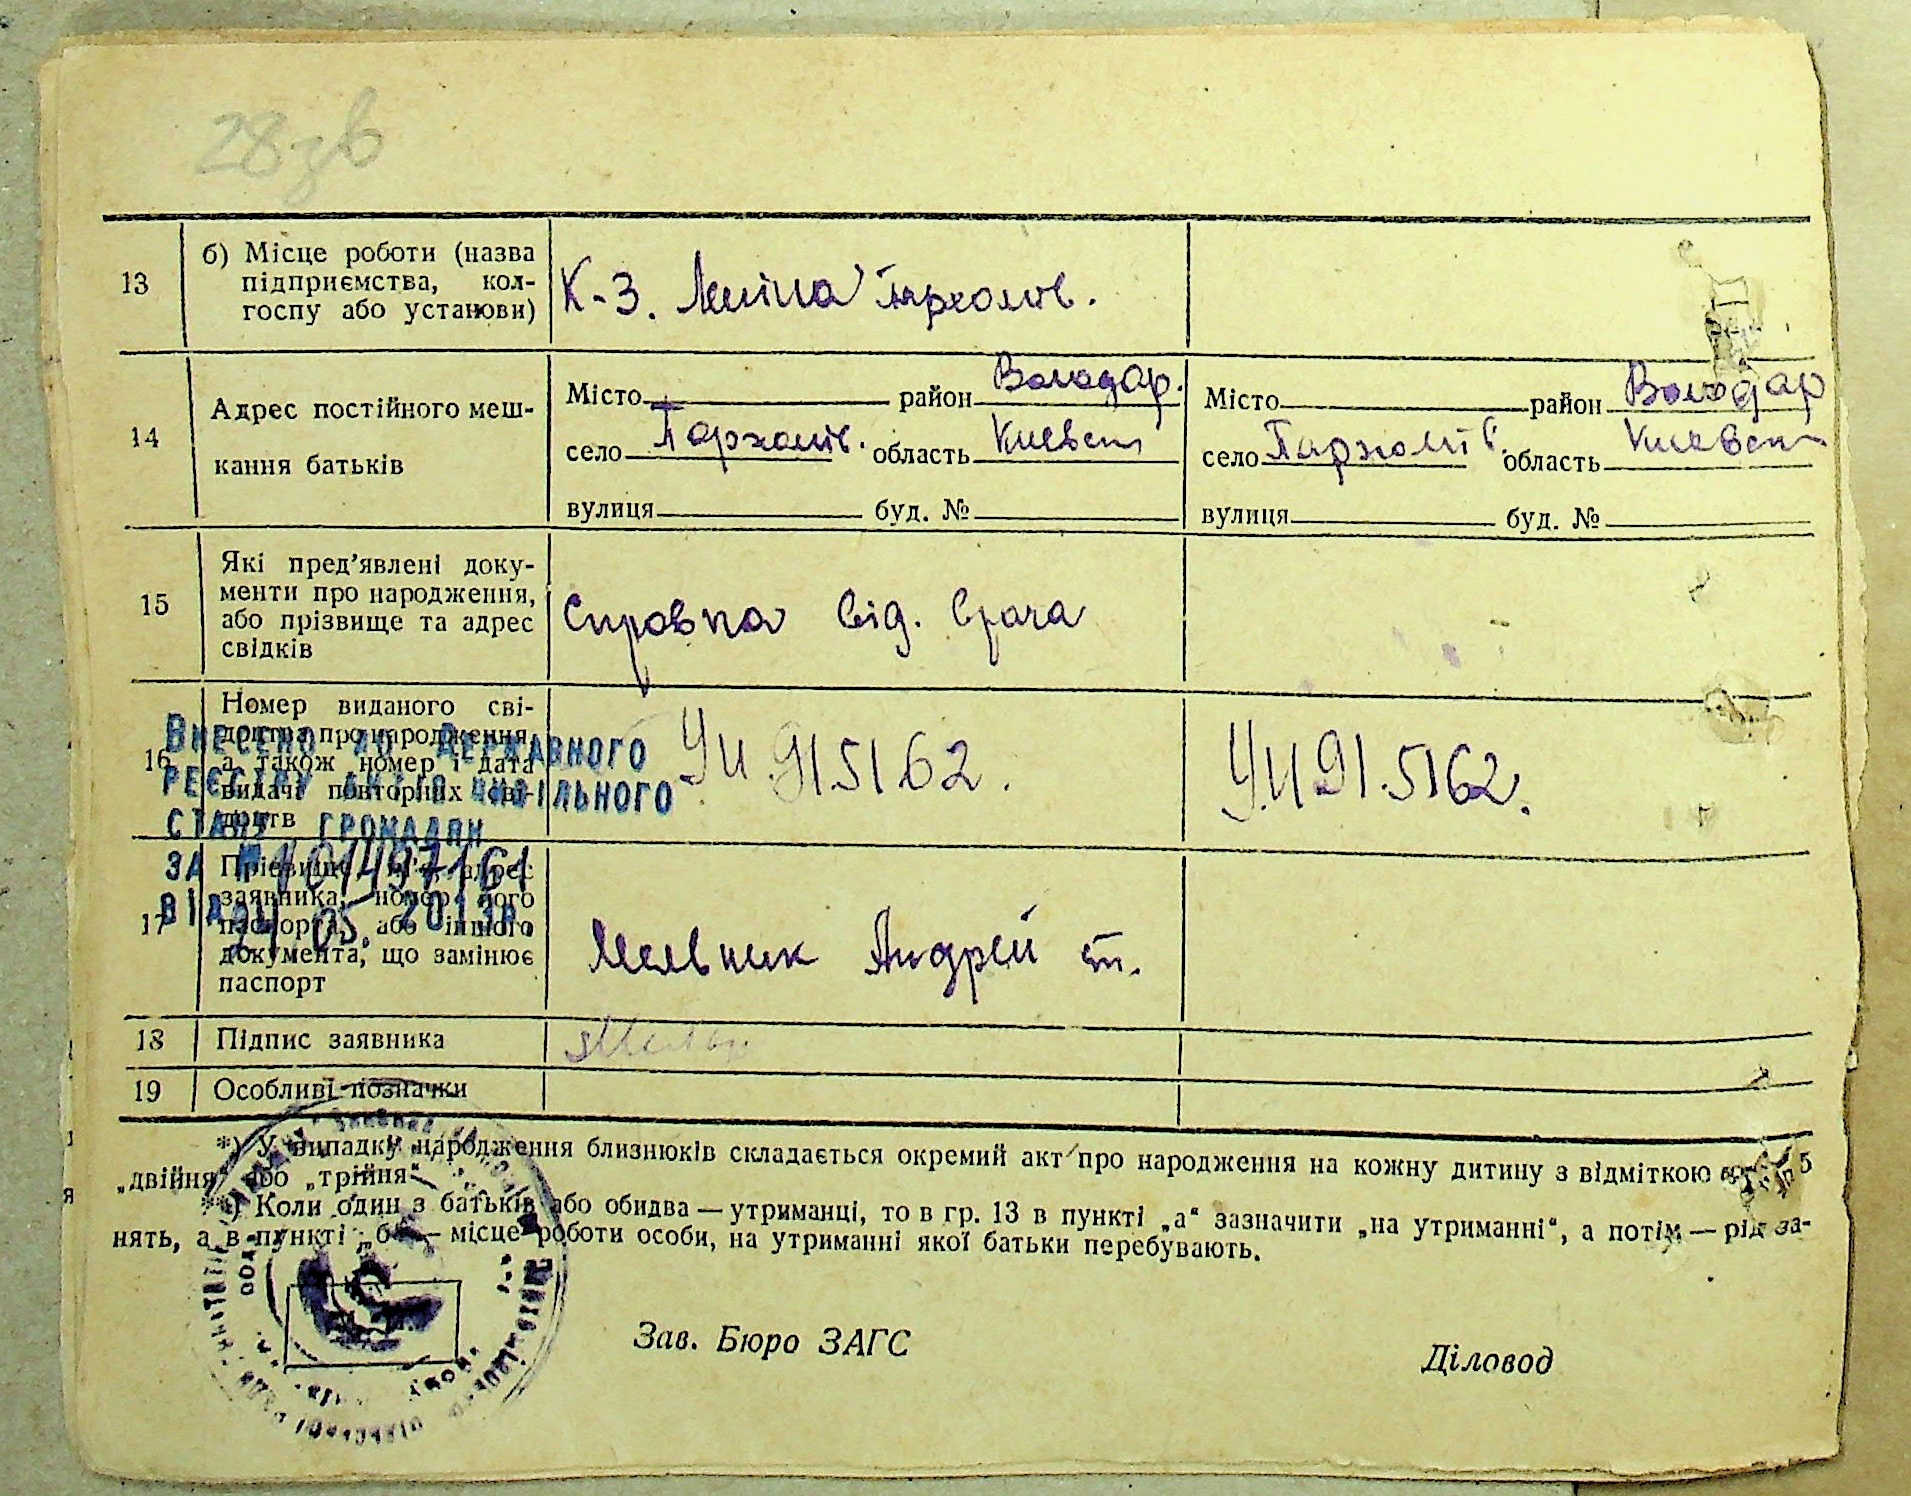 28зв
13 б) Місце роботи (назва
підприємства, кол-
госпу або установи)
К-З. Леніна Пархомів.
14 Адрес постійного меш-
кання батьків
Місто район Володар.
село Пархомів. область Киевск
вулиця буд. №
Місто район Володар
село Пархомів. область Киевск
вулиця буд. №
15 Які пред’явлені доку-
менти про народження,
або прізвище та адрес
свідків
Справка від. врача
16 Номер виданого сві-
доцтва про народження,
а також номер і дата
видачі повторних сві-
доцтв
УИ.915162.
У.И 915162.
Внесено до Державного
реєстру актів цивільного
стану громадян
за №101497161
від 24.05. 2013р.
17 Прізвище, ім’я, адрес
заявника, номер його
паспорта, або іншого
документа, що замінює
паспорт
Мельник Андрей т.
18 Підпис заявника
19 Особливі позначки
*) У випадку народження близнюків складається окремий акт про народження на кожну дитину з відміткою
„двійня“ або „трійня“.
**) Коли один з батьків або обидва — утриманці, то в гр. 13 в пункті „а“ зазначити „на утриманні“, а потім — рід за-
нять, а в пункті „б“ — місце роботи особи, на утриманні якої батьки перебувають.
Зав. Бюро ЗАГС
Діловод